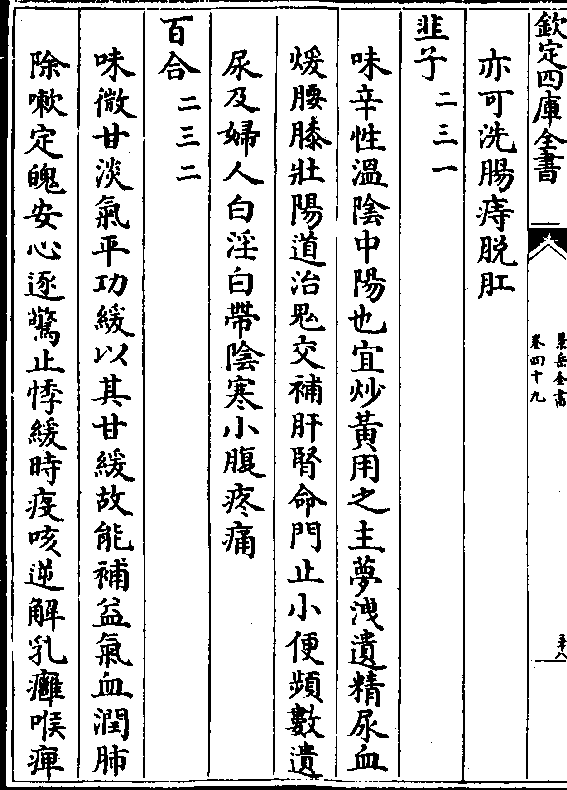 欽定四庫全書
景岳全書
卷四十九
五十八
亦可洗腸痔脱肛
韭子二三一
味辛性溫陰中陽也宜炒黃用之主夢洩遺精尿血
煖腰膝壯陽道治鬼交補肝腎命門止小便頻數遺
尿及婦人白淫白帶陰寒小腹疼痛
百合二三二
味微甘淡氣平功緩以其甘緩故能補益氣血潤肺
除嗽定魄安心逐驚止悸緩時疫咳逆解乳癰喉痺